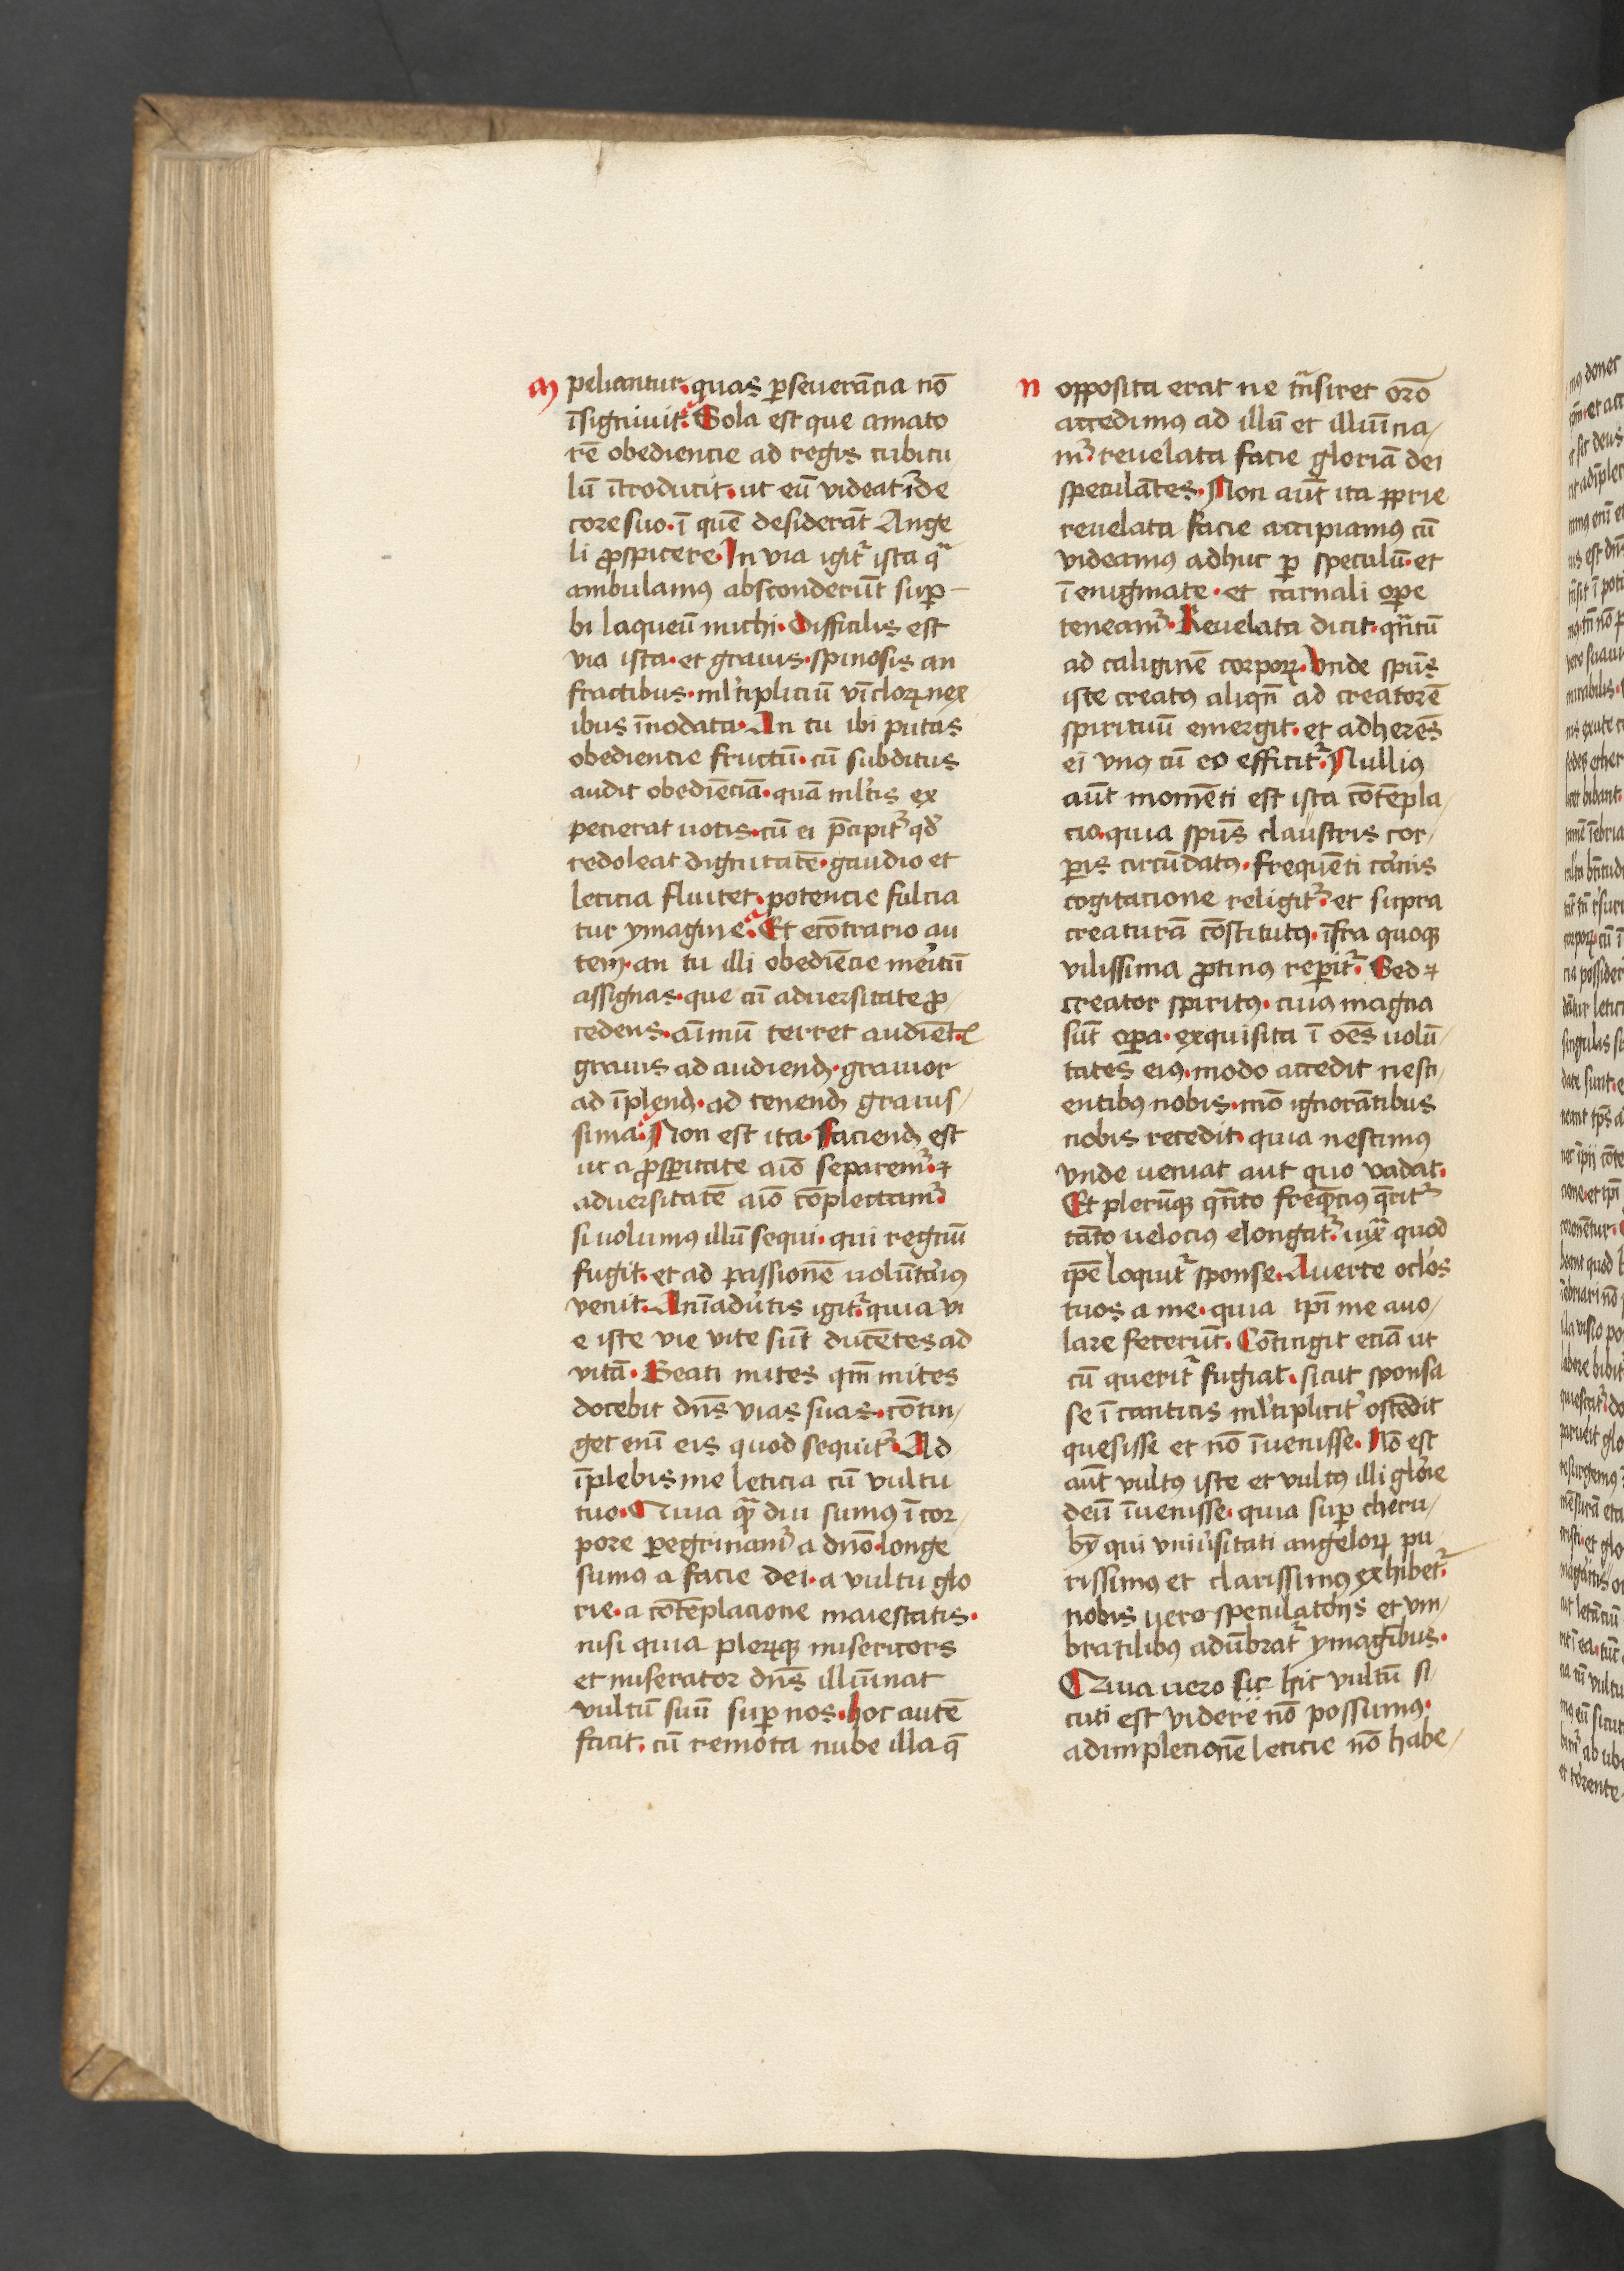 m
pelicantur. quas ꝑseuerãcia nõ
ĩsigniuit. Sola est que amato
rẽ obediencie ad regis cubicu
lũ ĩtroducit. ut eũ videat ĩ de
core suo. ĩ quẽ desiderãt Ange
li ꝓspicere. In via igitᷣ ista qᷓ
ambulamꝯ absconderũt suꝑ-
bi laqueũ michi. Difficilis est
via ista. et grauis. spinosis an
fractibus. ml̓tipliciũ vĩcloꝝ nex
ibus ĩnodata. An tu ibi putas
obediencie fructũ. cũ subditus
audit obediẽciã. quã ml̓tis ex
pecierat uotis. cũ ei p̃cipitᷣ qd̓
redoleat dignitatẽ. gaudio et
leticia fluitet. potencie fulcia
tur ymagine. Et ecõtrario au
tem. an tu illi obediẽcie meritũ
assignas. que cũ aduersitate ꝓ/
cedens. aĩmũ terret audiẽt.
grauis ad audiend̓. grauior
ad ĩplend̓. ad tenend̓ grauis/
sima. Non est ita. Faciend̓ est
ut a ꝓsꝑitate aĩo separemᷣ. ⁊
aduersitatẽ aĩo cõplectamᷣ.
si uolumꝯ illũ sequi. qui regnũ
fugit. et ad passionẽ uolũtariꝯ
venit. Anĩadũtis igitᷣ. quia vi
e iste vie vite sũt ducẽtes ad
vitã. Beati mites qm̃ mites
docebit dñs vias suas. cõtin/
get enĩ eis quod sequitᷣ. Ad
ĩplebis me leticia cũ vultu
tuo. Quia qᷓ diu sumꝯ ĩ cor/
pore ꝑegrinamᷣ a dño. longe
sumꝯ a facie dei. a vultu glo
rie. a cõtẽplacione maiestatis.
nisi quia pleꝝqꝫ misericors
et miserator dñs illuĩnat
vultũ suũ suꝑ nos. Hoc autẽ
facit. cũ remota nube illa q̃
n
opposita erat ne tᷓnsiret orõ
accedimꝯ ad illũ et illuĩna/
mᷣ. reuelata facie gloriã dei
speculãtes. Non aũt ita ꝓprie
reuelata facie accipiamꝯ cũ
videamꝯ adhuc ꝑ speculũ. et
ĩ enigmate. et carnali oꝑe
teneamᷣ. Reuelata dicit. qᷓntũ
ad caliginẽ corꝑoꝝ. Vnde spũs
iste creatꝯ aliqñ ad creatorẽ
spirituũ emergit. et adherẽs
ei vnꝯ cũ eo efficitᷣ. Nulliꝯ
aũt momẽti est ista cõtẽpla/
cio. quia spũs claustris cor/
ꝑis circũdatꝯ. frequẽti carnis
cogitacione religitᷣ. et supra
creaturã cõstitutꝯ. ĩfra quoqꝫ
vilissima ꝓtinꝯ reꝑitᷣ. Sed ⁊
creator spiritꝯ. cuiꝯ magna
sũt oꝑa. exquisita ĩ oẽs uolũ/
tates eiꝯ. modo accedit nesci/
entibꝯ nobis. mõ ignorãtibus
nobis recedit. quia nescimꝯ
vnde ueniat aut quo vadat.
Et plerũqꝫ qᷓnto freq̃ciꝯ q̃ritᷣ
tãto uelociꝯ elongatᷣ. iuxᷓ quod
ip̃e loquitᷣ sponse. Auerte oclos
tuos a me. quia ip̃i me auo/
lare fecerũt. Cõtingit eciã ut
cũ queritᷣ fugiat. sicut sponsa
se ĩ canticis ml̓tiplicitᷣ ostẽdit
quesisse et nõ ĩuenisse. Nõ est
aũt vultꝯ iste et vultꝯ illi glorie
deũ ĩuenisse. quia suꝑ cheru/
bỹ qui vniũsitati angeloꝝ pu
rissimꝯ et clarissimꝯ exhibetᷣ.
nobis uero speculatorijs et vm/
bratilibꝯ adũbratᷣ ymagĩbus.
Quia uero sic hic vultũ si
cuti est videre nõ possumꝯ.
adimplecionẽ leticie nõ habe/